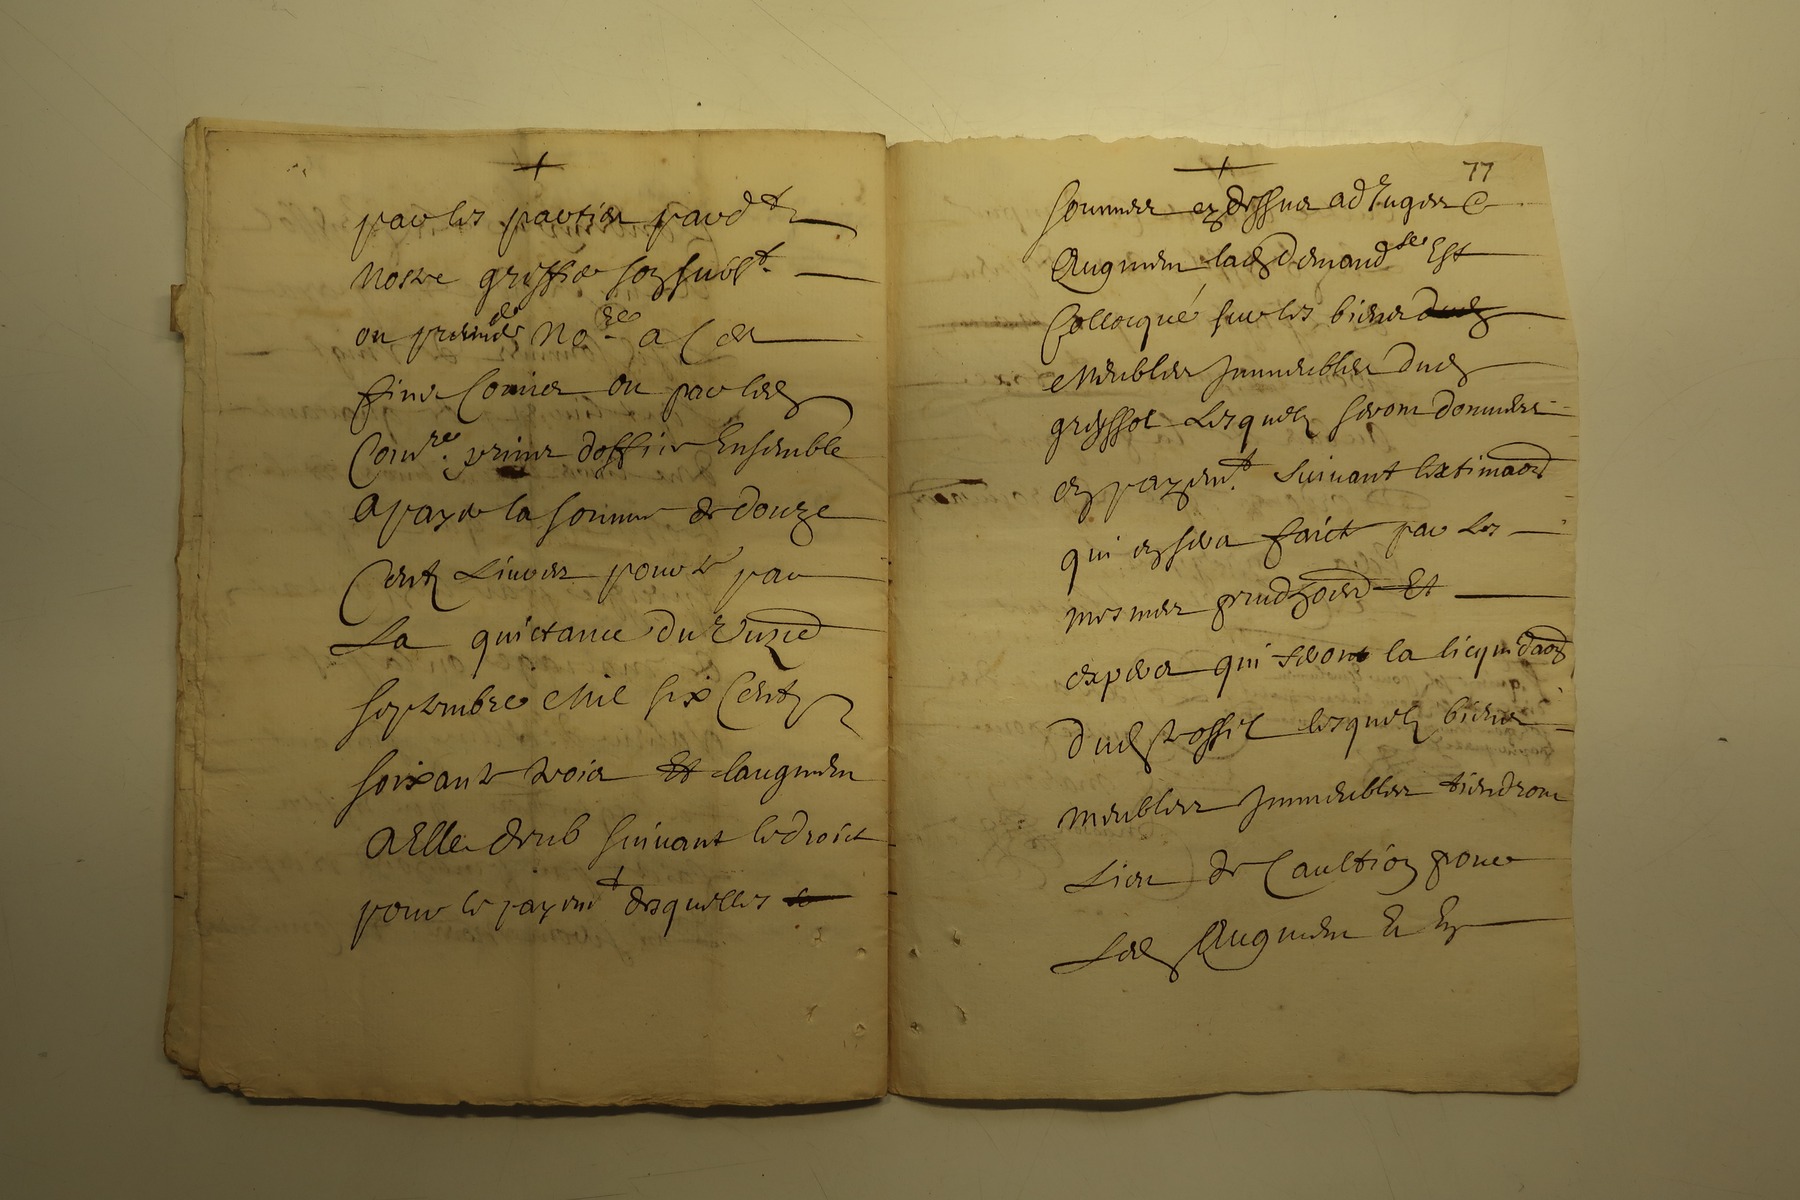 +
par les parties pard^t
nostre greffier son subs^t.
ou premier no^re a ces
fins comis ou par led
Com^re. prins doffice Ensemble
a payer la somme de douze
Cents Livres pour par
La quictance du unze
septembre Mil six Cents
soixante trois Et laugment
a Elle deub suivant le droict
pour le payem^t desquelles
+ 77
sommes cy dessus adjuges &
Augment lad demand^se Est
Collocqué sur les biens
Meubles Immeubles dud
greyssol Lesquels seront donnes
en payem^t. suivant lextimaon
qui en sera faict par Les
mesmes prudhoms Et
expers qui feront la licquidaon
dud fossil lesquels biens
meubles Immeubles tiendront
Lieu de Caultion pour
Led Augment Et En